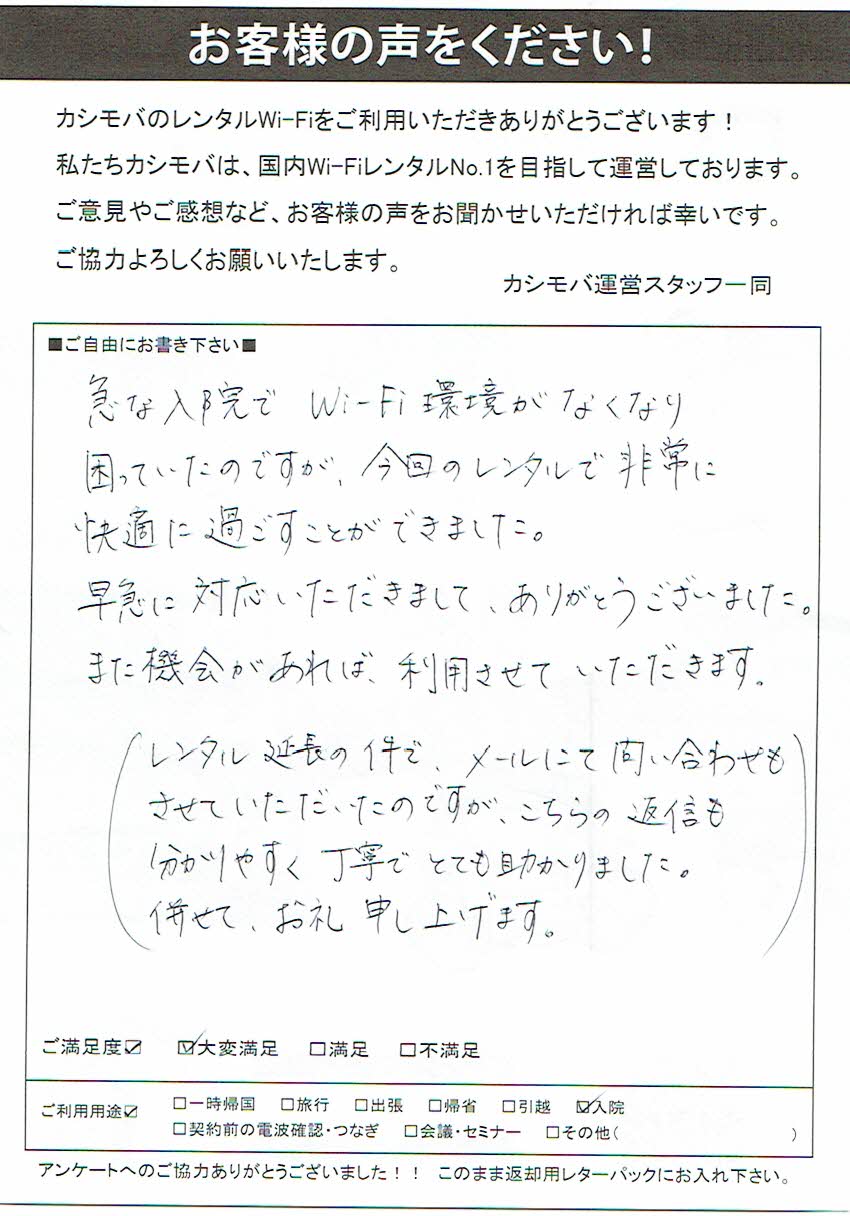 お客様の声をください！
カシモバのレンタルWi-Fiをご利用いただきありがとうございます！
私たちカシモバは、国内Wi-FiレンタルNo.1を目指して運営しております。
ご意見やご感想など、お客様の声をお聞かせいただければ幸いです。
ご協力よろしくお願いいたします。
カシモバ運営スタッフ一同
■ご自由にお書き下さい■
急な入院で Wi-Fi環境がなくなり
困っていたのですが、今回のレンタルで非常に
快適に過ごすことができました。
早急に対応いただきまして、ありがとうございました。
また機会があれば、利用させていただきます。
(レンタル延長の件で、メールにて問い合わせも
させていただいたのですが、こちらの返信も
分かりやすく丁寧でとても助かりました。
併せて、お礼申し上げます。)
ご満足度☑ ☑大変満足 □満足 □不満足
ご利用用途☑ □一時帰国 □旅行 □出張 □帰省 □引越 ☑入院
□契約前の電波確認・つなぎ □会議・セミナー □その他( )
アンケートへのご協力ありがとうございました！！ このまま返却用レターパックにお入れ下さい。